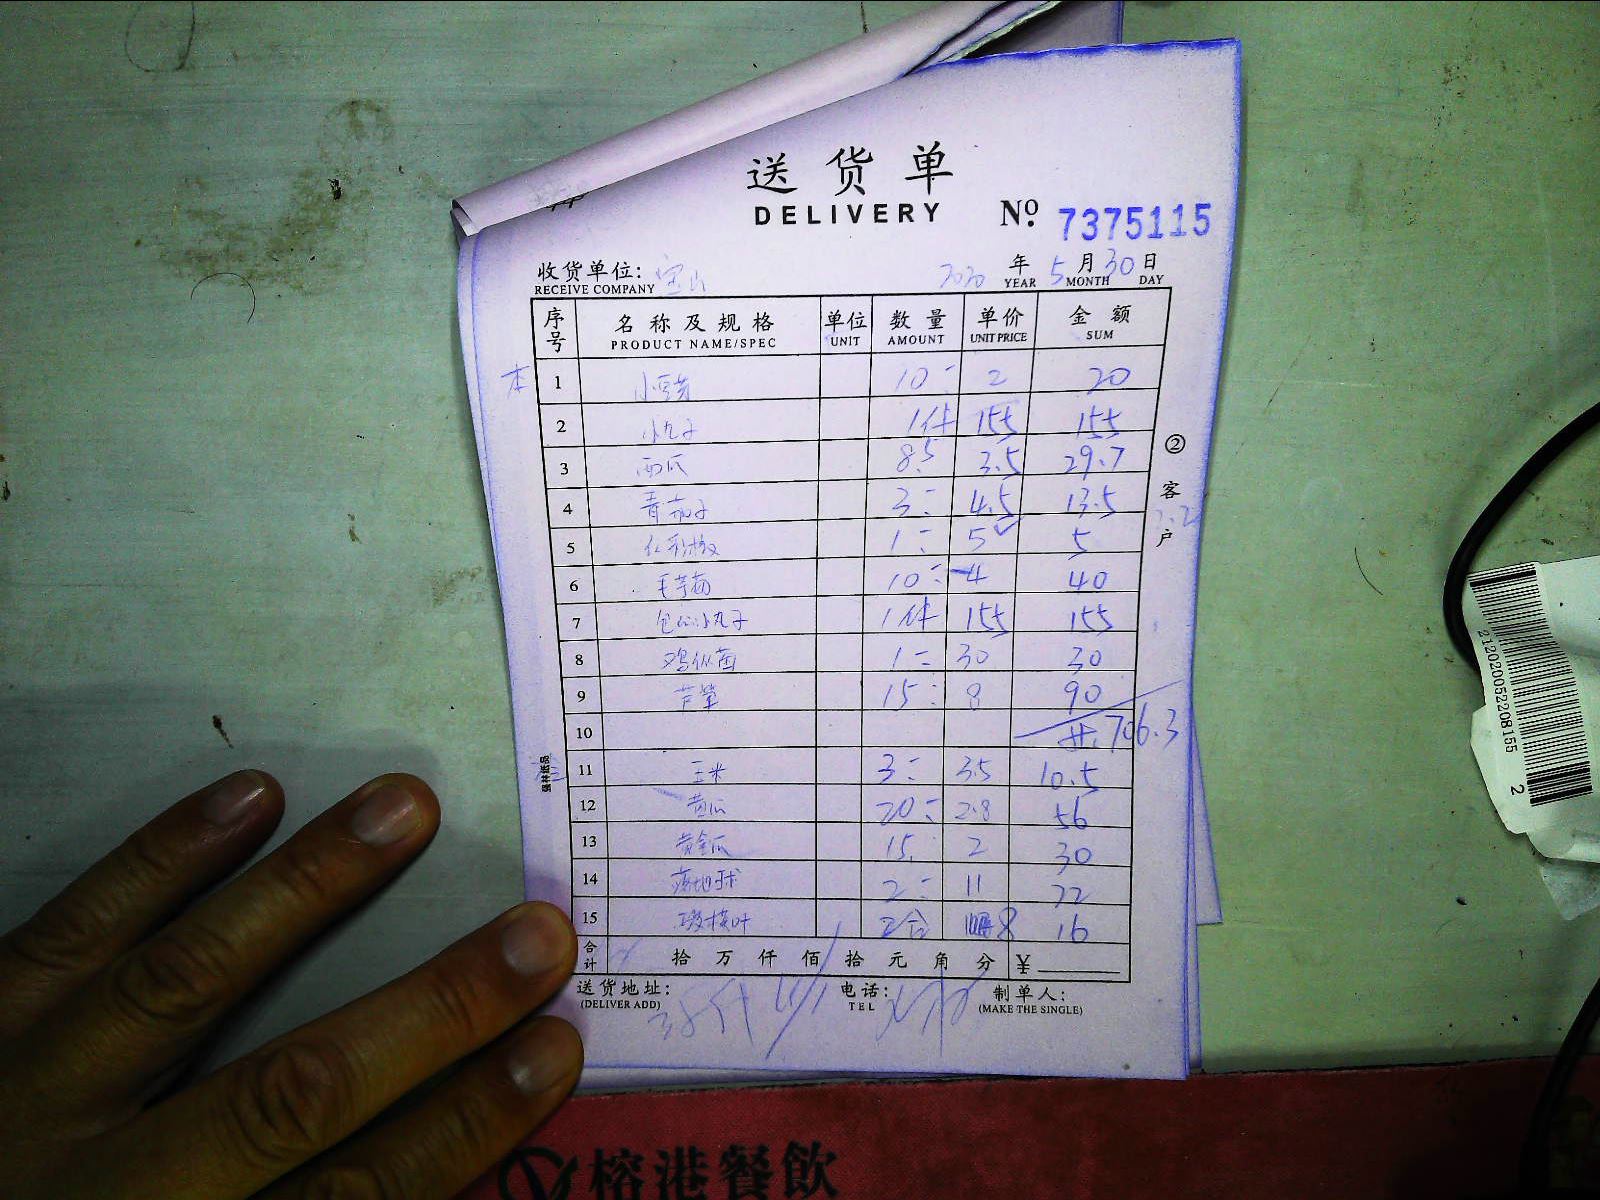 送货单
DELIVERY
No. 7375115
收货单位: 宝山 2020 年 5 月 30 日
RECEIVE COMPANY YEAR MONTH DAY
序号 名称及规格 单位 数量 单价 金额
PRODUCT NAME/SPEC UNIT AMOUNT UNIT PRICE SUM
本 1 小豆芽 10 2 20
2 小丸子 1件 155 155
3 西瓜 8.5 3.5 29.7
4 青茄子 3 4.5 13.5
5 1 5 5
6 毛芋艿 10 4 40
7 包心小丸子 1件 155 155
8 鸡枞菌 1 30 30
9 芦笋 15 8 90
10 共706.3
11 玉米 3 3.5 10.5
12 黄瓜 20 2.8 56
13 黄金瓜 15 2 30
14 2 11 22
15 2合 8 16
合计 拾 万 仟 佰 拾 元 角 分 ¥
送货地址: 电话: 制单人:
(DELIVER ADD) TEL (MAKE THE SINGLE)
② 客户
强林纸品
2120200522081552
榕港餐飲